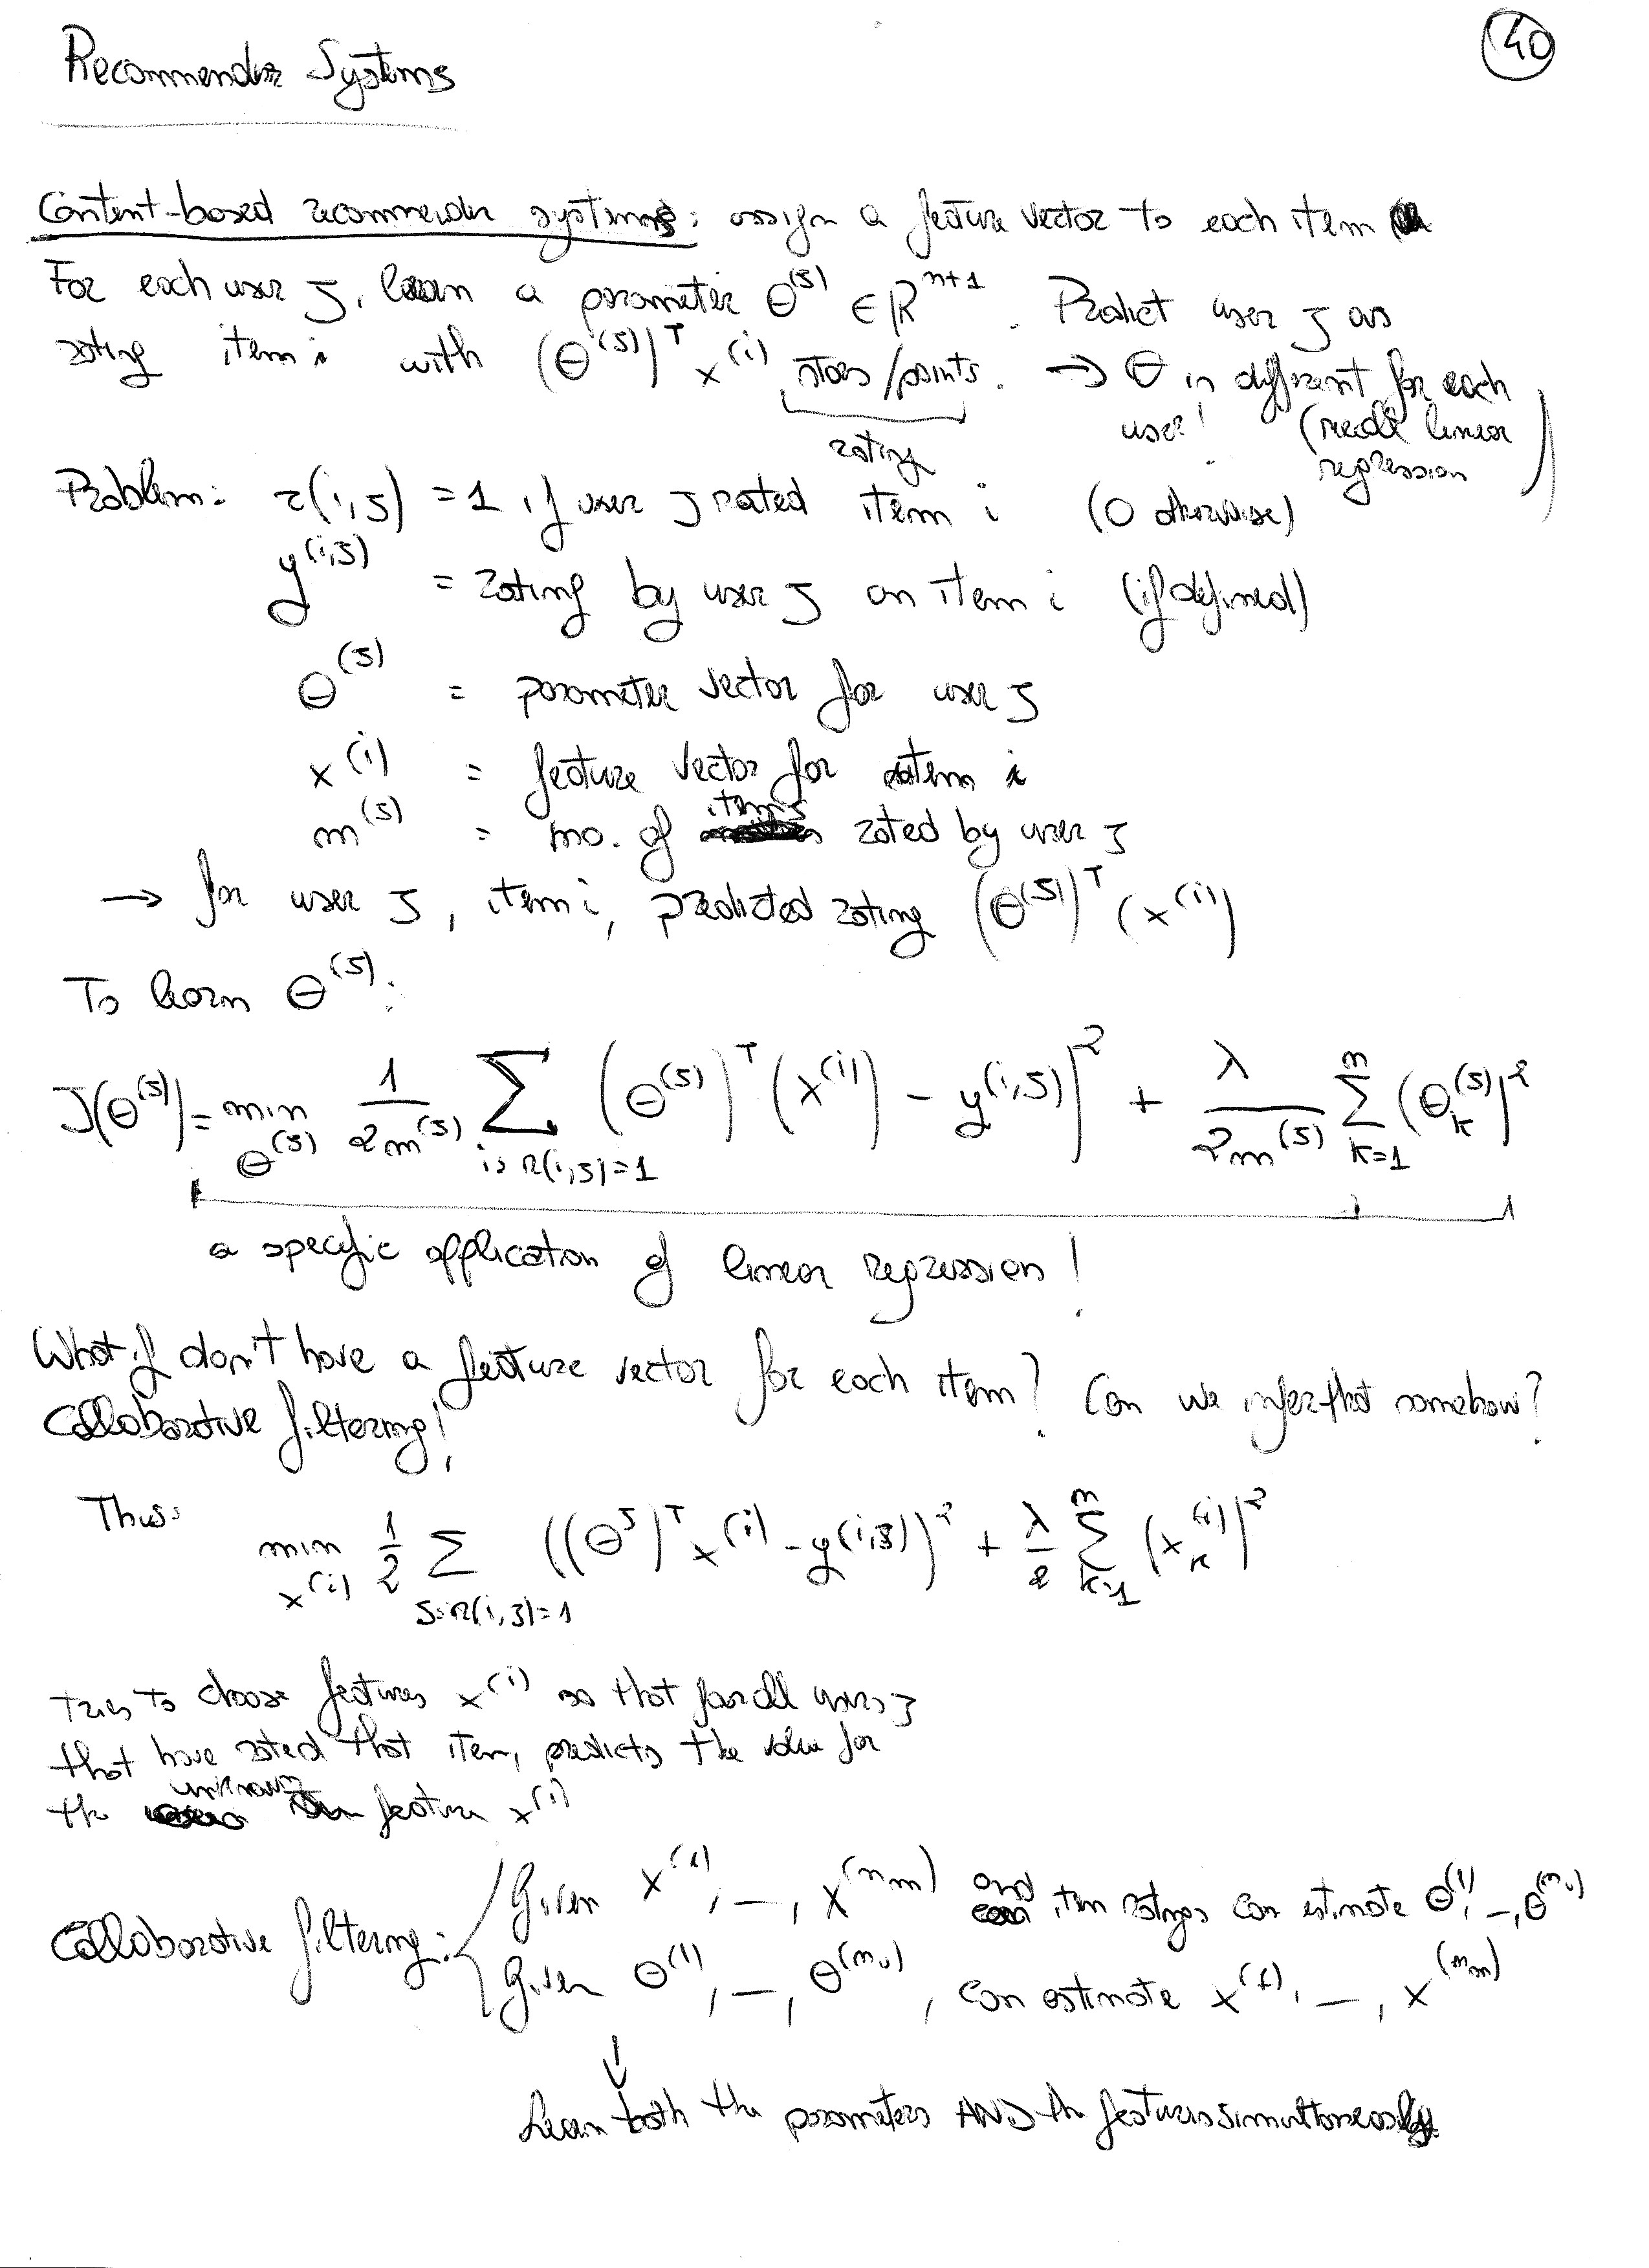 40
Recommender Systems
Content-based recommender systems: assign a feature vector to each item
For each user j, learn a parameter θ^(j) ∈ ℝ^(n+1). Predict user j as
rating item i with (θ^(j))^T x^(i) stars/points. → θ is different for each
user! (recall linear
regression)
rating
Problem: r(i,j) = 1 if user j rated item i (0 otherwise)
y^(i,j) = rating by user j on item i (if defined)
θ^(j) = parameter vector for user j
x^(i) = feature vector for item i
m^(j) = no. of items rated by user j
→ for user j, item i, predicted rating (θ^(j))^T (x^(i))
To learn θ^(j):
J(θ^(j)) = min_θ^(j) 1/2m^(j) Σ_{i: r(i,j)=1} (θ^(j))^T (x^(i)) - y^(i,j))^2 + λ/2m^(j) Σ_{k=1}^n (θ_k^(j))^2
a specific application of linear regression!
What if don't have a feature vector for each item? Can we infer that somehow?
Collaborative filtering!
Thus:
min_x^(i) 1/2 Σ_{j: r(i,j)=1} ((θ^j)^T x^(i) - y^(i,j))^2 + λ/2 Σ_{k=1}^n (x_k^(i))^2
tries to choose features x^(i) so that for all users j
that have rated that item, predicts the value for
the unknown feature x^(i)
Collaborative filtering: { Given x^(1), —, x^(n_m) and item ratings can estimate θ^(1), —, θ^(n_u)
Given θ^(1), —, θ^(n_u), can estimate x^(1), —, x^(n_m)
↓
Learn both the parameters AND the features simultaneously